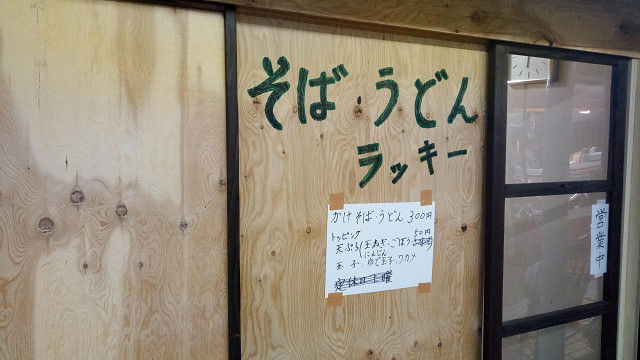 そば・うどん
ラッキー
かけそば・うどん 300円
トッピング 50円
天ぷら(玉ねぎ・ごぼう
にんじん
玉子・ゆで玉子・ワカメ
定休日土曜
営業中